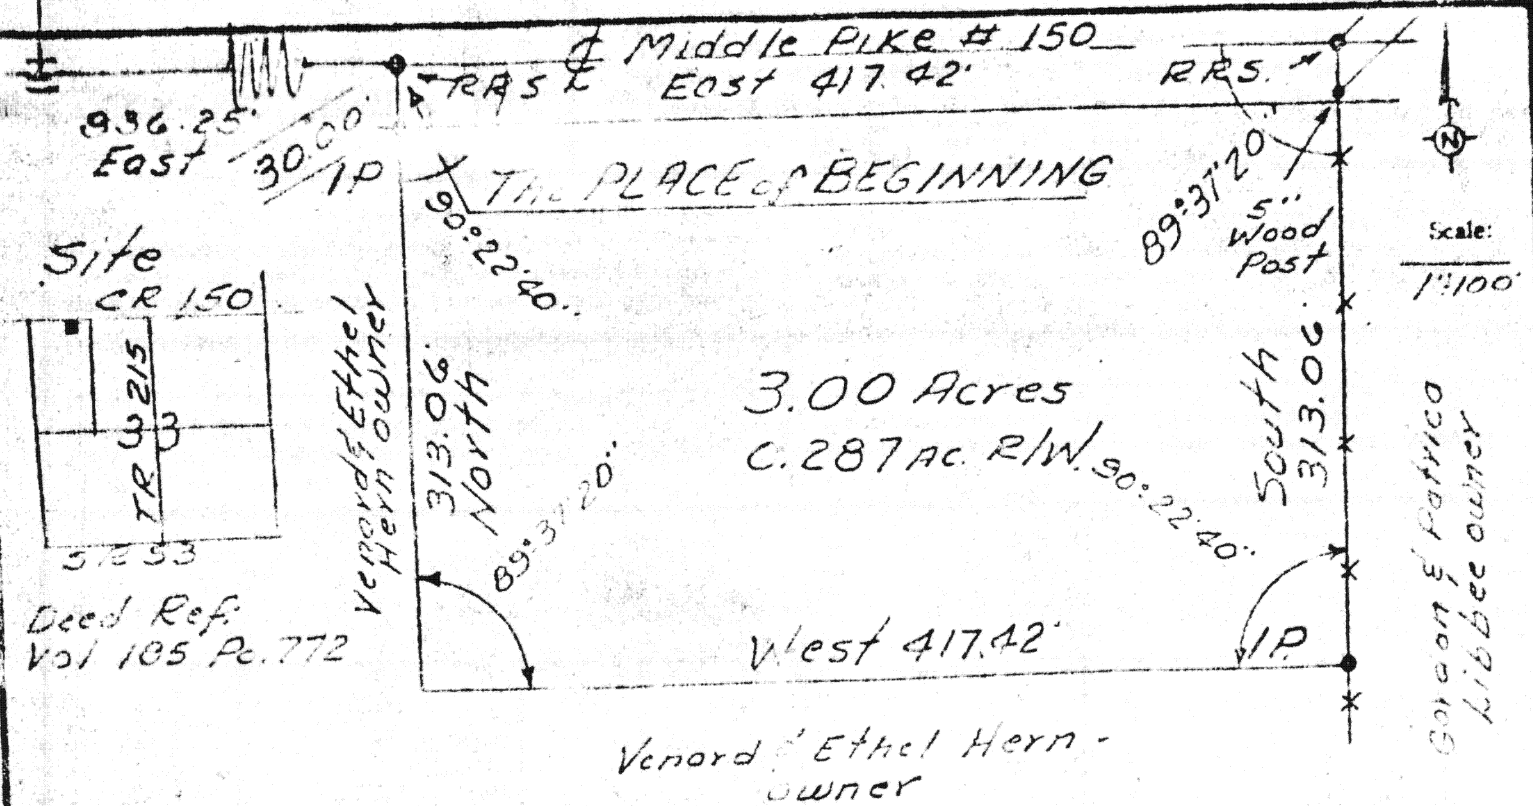 ℄ Middle Pike # 150
RRS ℄ East 417.42'
RRS.
936.25'
East
30.00'
IP
The PLACE of BEGINNING
90°22'40"
89°37'20"
5"
Wood
Post
N
Scale:
1":100'
Site
CR 150
TR 215
33
Deed Ref:
Vol 185 Pg. 772
Venard & Ethel
Hern owner
313.06
North
89°37'20"
3.00 Acres
C. 287 AC. R/W.
90°22'40"
South
313.06'
West 417.42'
IP.
Gordon & Patrica
Libbee owner
Venard & Ethel Hern -
owner